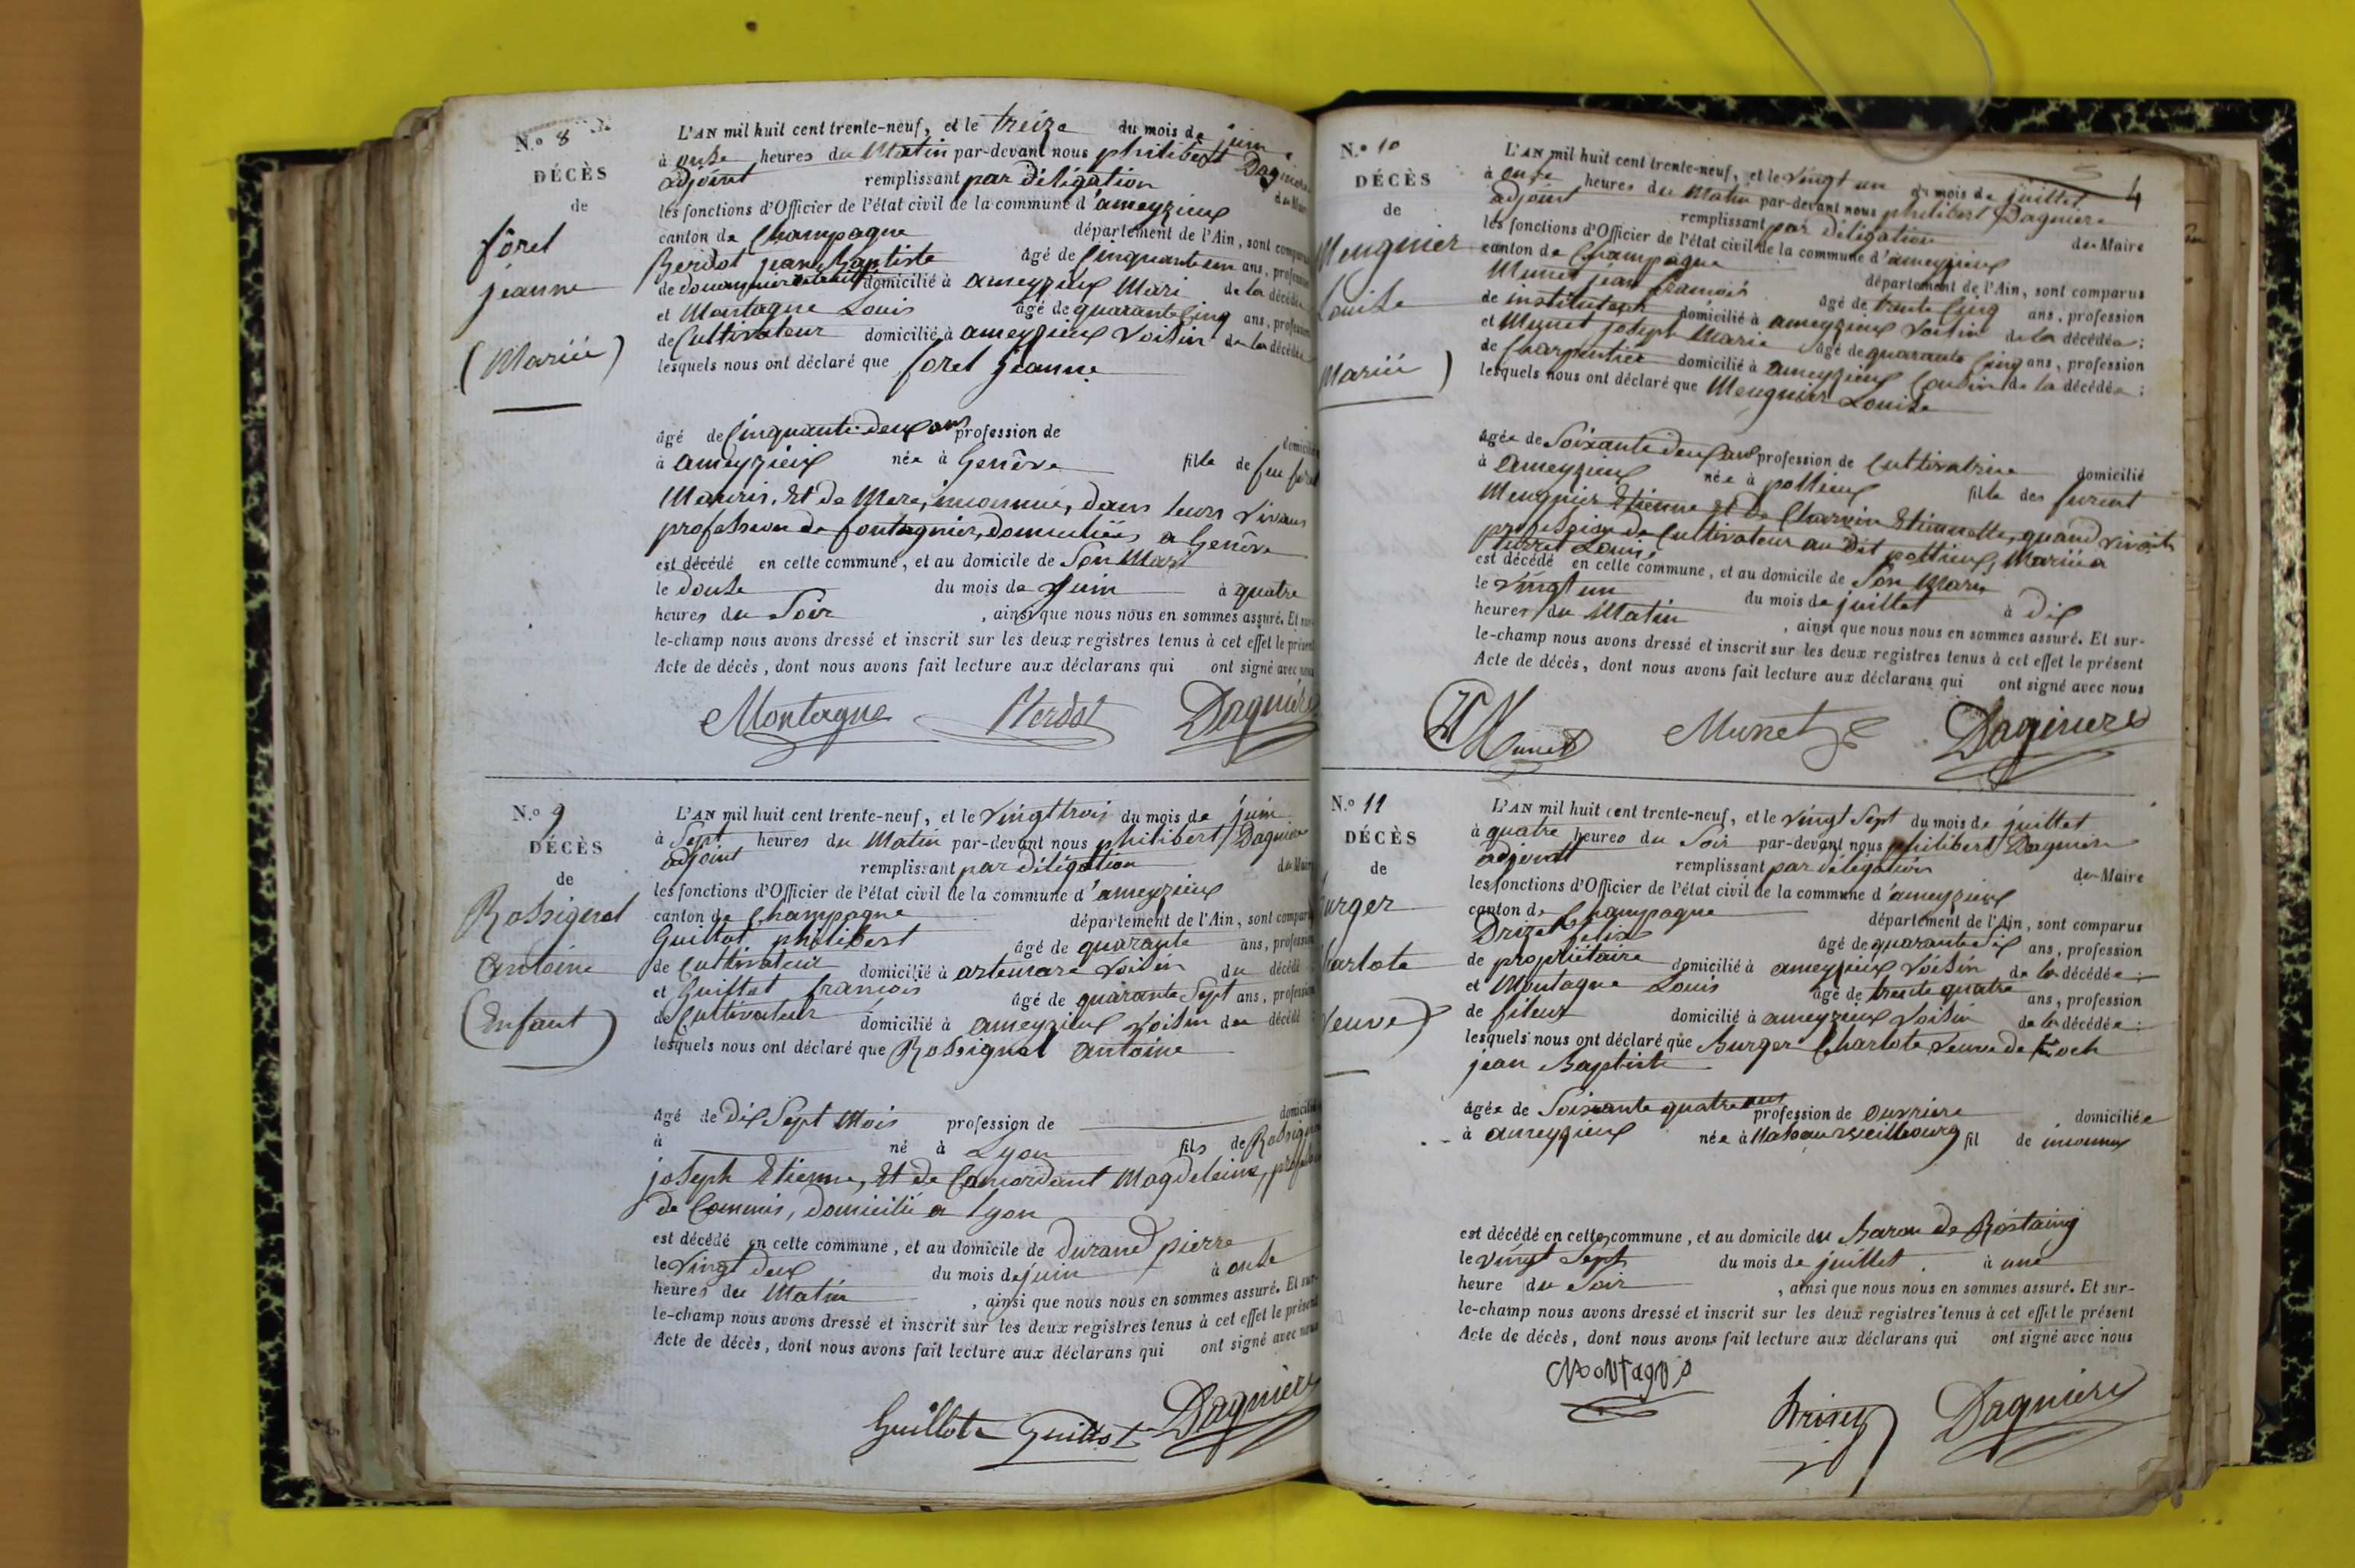 N.º 8
DÉCÈS
de
forel
jeanne
(Mariée)
L'AN mil huit cent trente-neuf, et le treize du mois de juin
à onse heures du Matin par-devant nous philibert Dagniere
adjoint remplissant par délégation du Maire
les fonctions d'Officier de l'état civil de la commune d'ameyzieux
canton de Champagne département de l'Ain, sont comparus
Berdot jean Baptiste âgé de Cinquante un ans, profession
de domicilié à ameyzieux Mari de la décédée
et Montagne Louis âgé de quarante Cinq ans, profession
de Cultivateur domicilié à ameyzieux Voisin de la décédée
lesquels nous ont déclaré que forel jeanne
âgé de Cinquante deux ans profession de domicilié
à ameyzieux née à Genêve fille de feu forel
Mauris, Et de Mere, inconnue, dans leurs vivans
profession de fontagnier, domiciliés a Genêve
est décédé en cette commune, et au domicile de Son Mari
le douse du mois de Juin à quatre
heures du Soir, ainsi que nous nous en sommes assuré. Et sur-
le-champ nous avons dressé et inscrit sur les deux registres tenus à cet effet le présent
Acte de décès, dont nous avons fait lecture aux déclarans qui ont signé avec nous
Montagne Berdot Dagniere
N.º 9
DÉCÈS
de
Rossignol
Antoine
(Enfant)
L'AN mil huit cent trente-neuf, et le Vingt trois du mois de juin
à Sept heures du Matin par-devant nous philibert Dagniere
adjoint remplissant par délégation du Maire
les fonctions d'Officier de l'état civil de la commune d'ameyzieux
canton de Champagne département de l'Ain, sont comparus
Guillot philibert âgé de quarante ans, profession
de Cultivateur domicilié à artemare Voisin du décédé
et Guillot francois âgé de quarante Sept ans, profession
de Cultivateur domicilié à ameyzieux Voisin du décédé
lesquels nous ont déclaré que Rossignol antoine
âgé de dix Sept Mois profession de domicilié
à né à Lyon fils de Rossignol
joseph Etienne, Et de Magdeleine,
de Commis, domicilié a Lyon
est décédé en cette commune, et au domicile de durand pierre
le Vingt deux du mois de juin à onse
heures du Matin, ainsi que nous nous en sommes assuré. Et sur-
le-champ nous avons dressé et inscrit sur les deux registres tenus à cet effet le présent
Acte de décès, dont nous avons fait lecture aux déclarans qui ont signé avec nous
Guillot Guillot Dagniere
4
N.º 10
DÉCÈS
de
Meugnier
Louise
Mariée)
L'AN mil huit cent trente-neuf, et le Vingt un du mois de juillet
à onse heures du Matin par-devant nous philibert Dagniere
adjoint remplissant par délégation du Maire
les fonctions d'Officier de l'état civil de la commune d'ameyzieux
canton de Champagne département de l'Ain, sont comparus
Munet jean francois âgé de trente Cinq ans, profession
de instituteur domicilié à ameyzieux Voisin de la décédée;
et Munet joseph Marie âgé de quarante Cinq ans, profession
de Charpentier domicilié à ameyzieux Cousin de la décédée;
lesquels nous ont déclaré que Meugnier Louise
âgée de Soixante deux ans profession de Cultivatrice domicilié
à ameyzieux née à pollieux fille des furent
Meugnier Etienne et de Charvin Etiennette, quand vivoit
profession de Cultivateur au dit pollieux, Mariée a
Louis
est décédé en cette commune, et au domicile de Son Mari
le Vingt un du mois de juillet à dix
heures du Matin, ainsi que nous nous en sommes assuré. Et sur-
le-champ nous avons dressé et inscrit sur les deux registres tenus à cet effet le présent
Acte de décès, dont nous avons fait lecture aux déclarans qui ont signé avec nous
Munet Munet Dagniere
N.º 11
DÉCÈS
de
urger
harlote
Veuve)
L'AN mil huit cent trente-neuf, et le Vingt Sept du mois de juillet
à quatre heures du Soir par-devant nous philibert Dagniere
adjoint remplissant par délégation du Maire
les fonctions d'Officier de l'état civil de la commune d'ameyzieux
canton de Champagne département de l'Ain, sont comparus
Drizet felix âgé de quarante Six ans, profession
de propriétaire domicilié à ameyzieux Voisin de la décédée;
et Montagne Louis âgé de trente quatre ans, profession
de fileur domicilié à ameyzieux Voisin de la décédée;
lesquels nous ont déclaré que Burger Charlote Veuve de
jean Baptiste
âgée de Soixante quatre ans profession de ouvriere domiciliée
à ameyzieux née à fil de inconnus
est décédé en cette commune, et au domicile du Baron de Rostaing
le Vingt Sept du mois de juillet à une
heure du Soir, ainsi que nous nous en sommes assuré. Et sur-
le-champ nous avons dressé et inscrit sur les deux registres tenus à cet effet le présent
Acte de décès, dont nous avons fait lecture aux déclarans qui ont signé avec nous
Dagniere